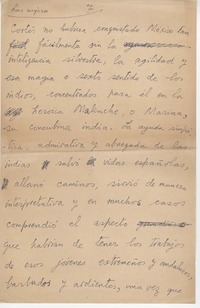 Las mujeres 7
Cortés no hubiera conquistado México tan
fácilmente sin la
inteligencia silvestre, la agilidad y
esa magna o sexto sentido de los
indios, concentrados para él en la
heroica Malinche, o Marina,
su concubina india. La ayuda
admirativa y abnegada de las
indias salvó vidas españolas,
allanó caminos, sirvió de manera
interpretativa y en muchos casos
comprendió el aspecto
que habían de tener los trabajos
de esos jóvenes extremeños y andaluces,
barbudos y ardientes, una vez que